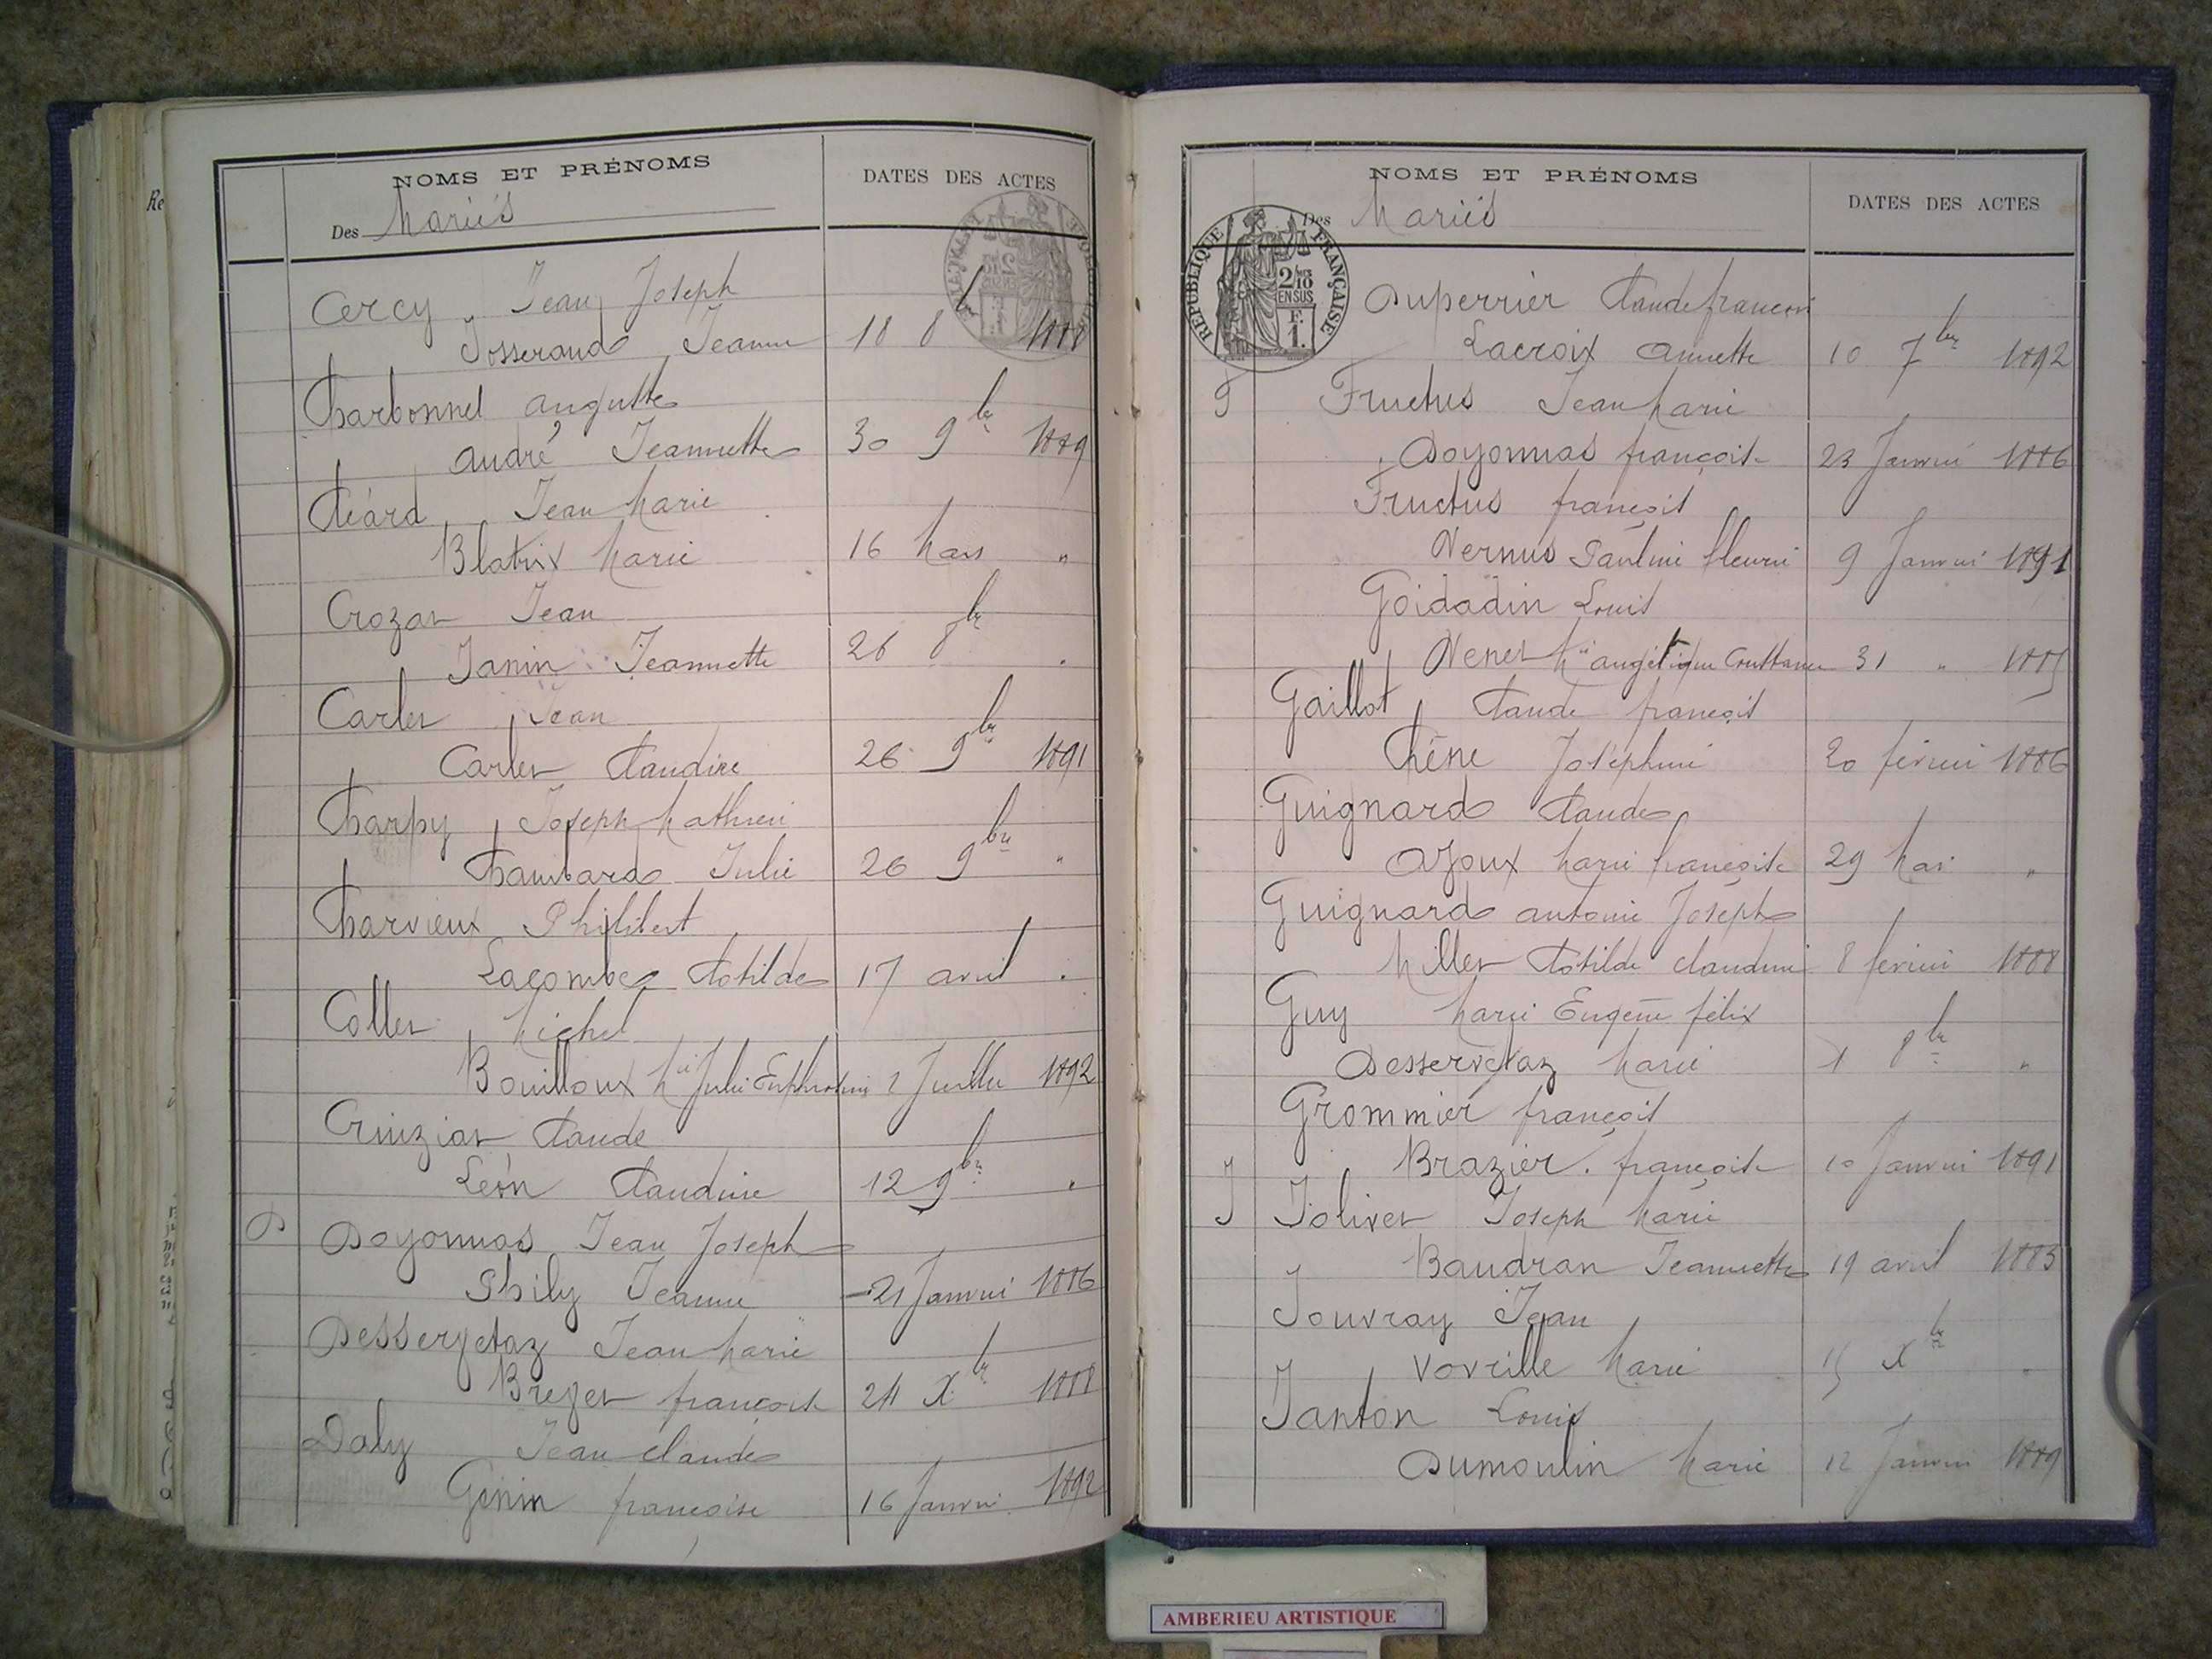 NOMS ET PRÉNOMS
Des Mariés
DATES DES ACTES
Cercy Jean Joseph
Josserand Jeanne 18 8br 1888
Charbonnel auguste
andré Jeannette 30 9br 1889
Cléard Jean Marie
Blatrix Marie 16 Mars "
Crozat Jean
Janin Jeannette 26 8br "
Carlet Jean
Carlet Claudine 26 9br 1891
Charpy Joseph Mathieu
Chambard Julie 26 9bre "
Charvieux Philibert
Lacombe Clotilde 17 avril "
Collet Michel
Bouilloux Mie Julie Euphrosine 2 Juillet 1892
Cruiziat Claude
Léon Claudine 12 9bre "
D Doyonnas Jean Joseph
Phily Jeanne 21 Janvier 1886
Desservetaz Jean Marie
Breyet françoise 24 Xbr 1888
Daly Jean claude
Génin françoise 16 Janvier 1892
NOMS ET PRÉNOMS
Des Mariés
DATES DES ACTES
RÉPUBLIQUE FRANÇAISE
2/10 EN SUS
F. 1.
Duperrier Claude françois
Lacroix annette 10 7bre 1892
F Fructus Jean Marie
Doyonnas françoise 23 Janvier 1886
Fructus françois
Vernus Pauline fleurie 9 Janvier 1891
Goidadin Louis
Venet Mie angélique Constance 31 " 1885
Gaillot Claude françois
Chêne Joséphine 20 février 1886
Guignard Claude
Ajoux Marie françoise 29 Mai "
Guignard antoine Joseph
Millet Clotilde claudine 8 février 1888
Guy Marie Eugène félix
Desservetaz Marie 1 8br "
Grommier françois
Brazier françoise 10 Janvier 1891
J Jolivet Joseph Marie
Baudran Jeannette 19 avril 1883
Jouvray Jean
Vovrille Marie 15 Xbre "
Janton Louis
Dumoulin Marie 12 Janvier 1889
AMBERIEU ARTISTIQUE